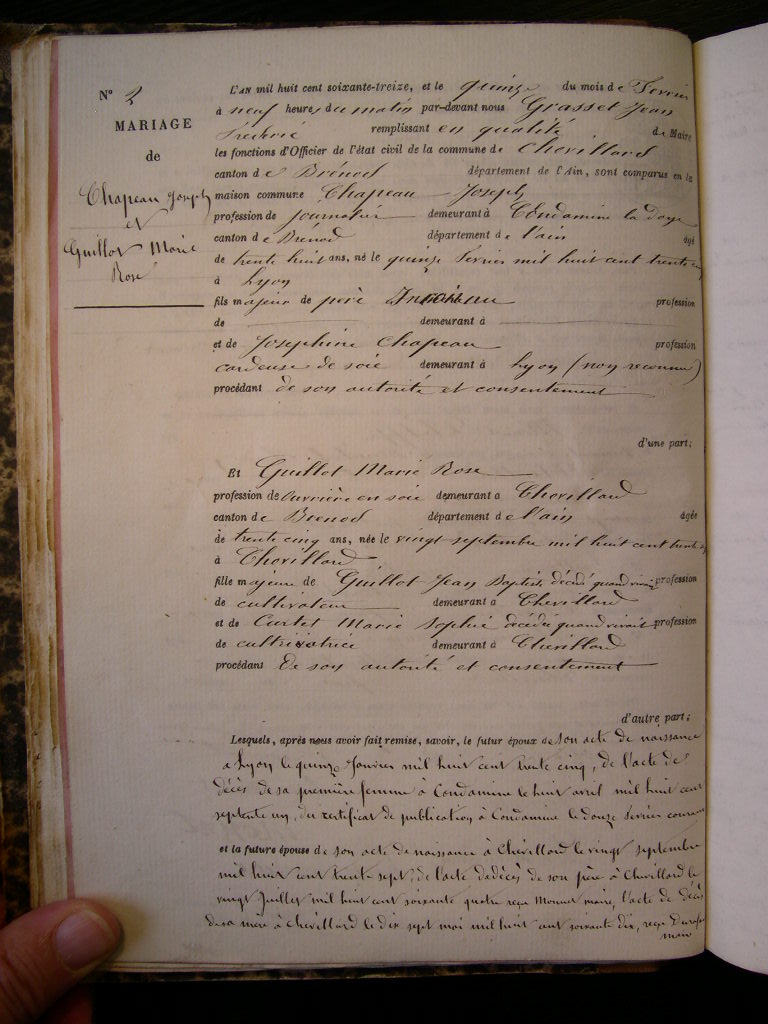 N° 2
MARIAGE
de
Chapeau Joseph
et
Guillot Marie
Rose
L'AN mil huit cent soixante-treize, et le quinze du mois de Fevrier
à neuf heures du matin par-devant nous Grasset Jean
Frédéric remplissant en qualité de Maire
les fonctions d'Officier de l'état civil de la commune de Chevillard
canton de Brénod département de l'Ain, sont comparus en la
maison commune Chapeau Joseph
profession de journalier demeurant à Condamine la Doye
canton de Brénod département de l'ain âgé
de trente huit ans, né le quinze Fevrier mil huit cent trente cinq
à Lyon
fils majeur de père profession
de demeurant à
et de Josephine Chapeau profession
cardeuse de soie demeurant à Lyon (non reconnu)
procédant de son autorité et consentement
d'une part;
Et Guillot Marie Rose
profession de ouvrière en soie demeurant à Chevillard
canton de Brenod département de l'ain âgée
de trente cinq ans, née le vingt septembre mil huit cent trente
à Chevillard
fille majeure de Guillot Jean Baptiste décédé quand vivait profession
de cultivateur demeurant à Chevillard
et de Curtet Marie Sophie décédée quand vivait profession
de cultivatrice demeurant à Chevillard
procédant de son autorité et consentement
d'autre part;
Lesquels, après nous avoir fait remise, savoir, le futur époux de son acte de naissance
a Lyon le quinze Janvier mil huit cent trente cinq, de l'acte de
décès de sa première femme à Condamine le huit avril mil huit cent
septente un, du certificat de publication à Condamine le douze Fevrier courant
et la future épouse de son acte de naissance à Chevillard le vingt septembre
mil huit cent trente sept, de l'acte de décès de son père à Chevillard le
vingt Juillet mil huit cent soixante quatre reçu Monnet maire, l'acte de décès
de sa mère à Chevillard le dix sept mai mil huit cent soixante dix, reçu
maire